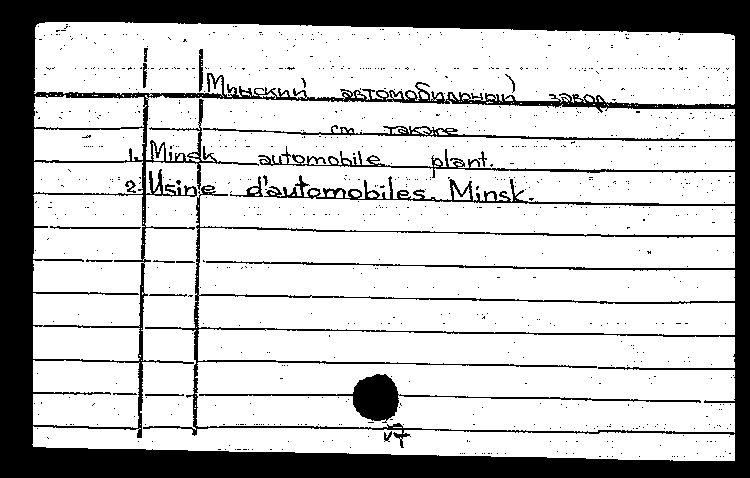 Минский автомобильный завод.
см. также
1. Minsk automobile plant.
2. Usine d'automobiles. Minsk.